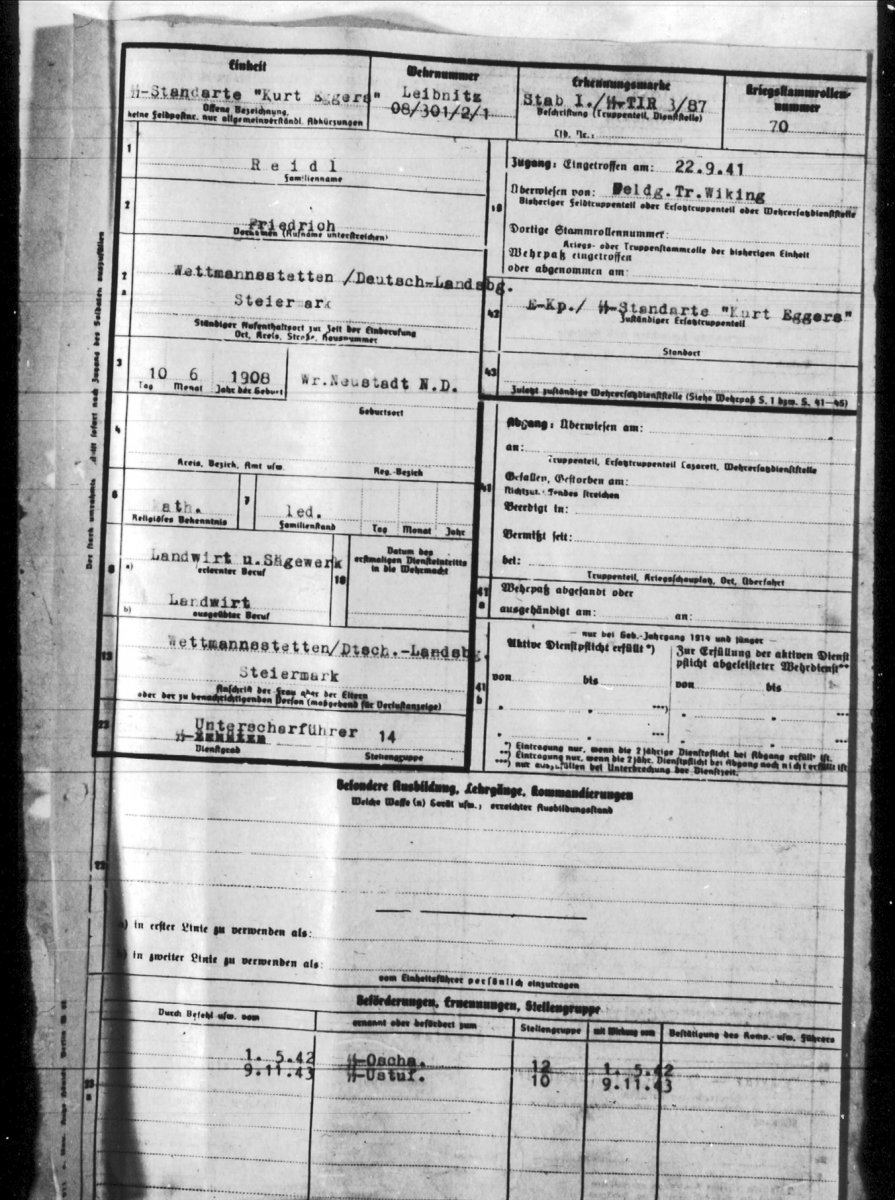 Einheit
SS-Standarte "Kurt Eggers"
Offene Bezeichnung,
keine Feldpostnr. nur allgemeinverständl. Abkürzungen
Wehrnummer
Leibnitz
08/301/2/1
Erkennungsmarke
Stab I./SS-TIR 3/87
Beschriftung (Truppenteil, Dienststelle)
Lfd. Nr.:
Kriegsstammrollen-
nummer
70
1
Reidl
Familienname
2
Friedrich
Vornamen (Rufname unterstreichen)
2
a
Wettmannsstetten /Deutsch-Landsbg.
Steiermark
Ständiger Aufenthaltsort zur Zeit der Einberufung
Ort, Kreis, Straße, Hausnummer
3
10 6 1908
Tag Monat Jahr der Geburt
Wr.Neustadt N.D.
Geburtsort
4
Kreis, Bezirk, Amt usw.
Reg.-Bezirk
6
kath.
Religiöses Bekenntnis
7
led.
Familienstand
Tag Monat Jahr
8
a)
Landwirt u.Sägewerk
erlernter Beruf
b)
Landwirt
ausgeübter Beruf
10
Datum des
erstmaligen Diensteintritts
in die Wehrmacht
13
Wettmannsstetten/Dtsch.-Landsbg.
Steiermark
Anschrift der Frau oder der Eltern
oder der zu benachrichtigenden Person (maßgebend für Verlustanzeige)
23
Unterscharführer
SS- 14
Dienstgrad
Stellengruppe
19
Zugang: Eingetroffen am: 22.9.41
Überwiesen von: Feldg.Tr.Wiking
Bisheriger Feldtruppenteil oder Ersatztruppenteil oder Wehrersatzdienststelle
Dortige Stammrollennummer:
Kriegs- oder Truppenstammrolle der bisherigen Einheit
Wehrpaß eingetroffen
oder abgenommen am:
42
E-Kp./ SS-Standarte "Kurt Eggers"
Zuständiger Ersatztruppenteil
Standort
43
Zuletzt zuständige Wehrersatzdienststelle (Siehe Wehrpaß S. 1 bzw. S. 41—45)
41
Abgang: Überwiesen am:
an:
Truppenteil, Ersatztruppenteil Lazarett, Wehrersatzdienststelle
Gefallen, Gestorben am:
Nichtzutreffendes streichen
Beerdigt in:
Vermißt seit:
bei:
Truppenteil, Kriegsschauplatz, Ort, Überfahrt
41
a
Wehrpaß abgesandt oder
ausgehändigt am: an:
41
b
— nur bei Geb.-Jahrgang 1914 und jünger —
Aktive Dienstpflicht erfüllt *)
von bis
" " ***)
" " ***
Zur Erfüllung der aktiven Dienst
pflicht abgeleisteter Wehrdienst**
von bis
" " ***
" " ***
*) Eintragung nur, wenn die 2jährige Dienstpflicht bei Abgang erfüllt ist.
**) Eintragung nur, wenn die 2jähr. Dienstpflicht bei Abgang noch nicht erfüllt ist
***) nur auszufüllen bei Unterbrechung der Dienstzeit.
Besondere Ausbildung, Lehrgänge, Kommandierungen
Welche Waffe (n) Gerät usw.; erreichter Ausbildungsstand
22
a) in erster Linie zu verwenden als:
b) in zweiter Linie zu verwenden als:
vom Einheitsführer persönlich einzutragen
Beförderungen, Ernennungen, Stellengruppe
Durch Befehl usw. vom
ernannt oder befördert zum
Stellengruppe
mit Wirkung vom
Bestätigung des Komp.- usw. Führers
23
a
1. 5.42 SS-Oscha. 12 1. 5.42
9.11.43 SS-Ustuf. 10 9.11.43